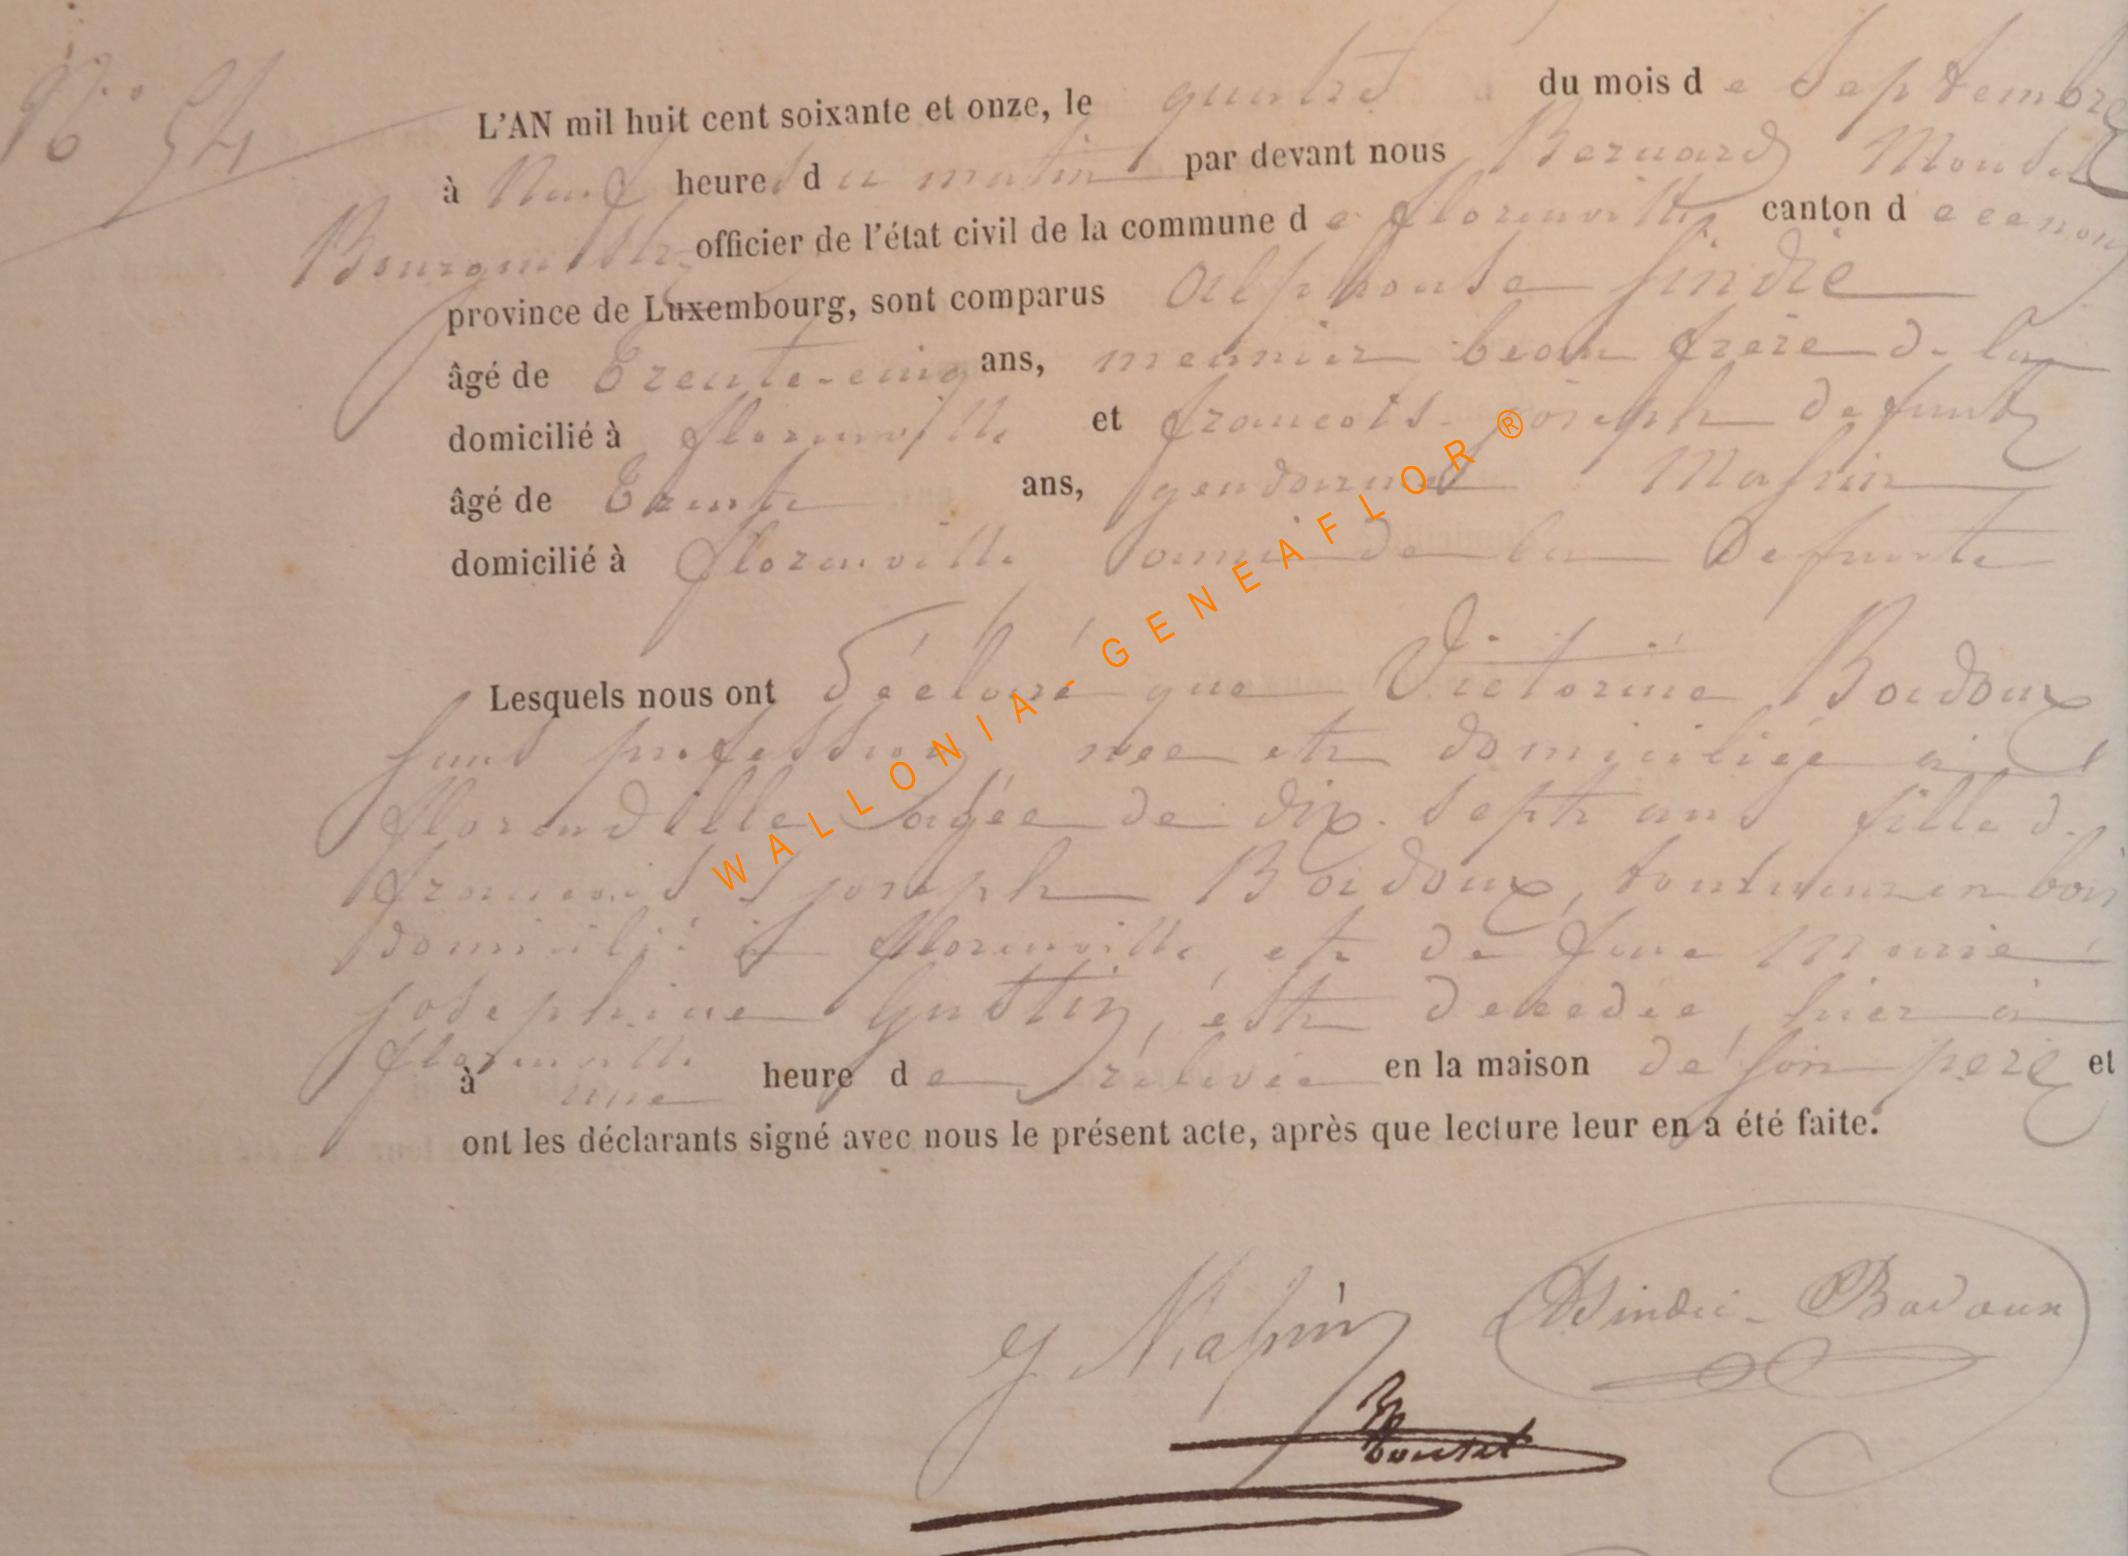 N° 54
L'AN mil huit cent soixante et onze, le quatre du mois de Septembre
à Neuf heures du matin par devant nous Bernard
Bourgmestre officier de l'état civil de la commune de florenville canton de
province de Luxembourg, sont comparus Alphonse Sindic
âgé de Trente-cinq ans, meunier beau frère de la
domicilié à florenville et françois joseph defunte
âgé de Trente ans, gendarme Massin
domicilié à florenville ami de la Defunte
Lesquels nous ont déclaré que Victorine Bodoux
sans profession née et domiciliée à
florenville agée de dix-sept ans fille de
françois joseph Bodoux, en bois
domicilié à florenville, et de feue Marie
josephine Gustin, est decedée, hier à
florenville
à une heure de rélévée en la maison de son pere et
ont les déclarants signé avec nous le présent acte, après que lecture leur en a été faite.
J Massin Sindic-Bodoux
WALLONIA-GENEAFLOR®